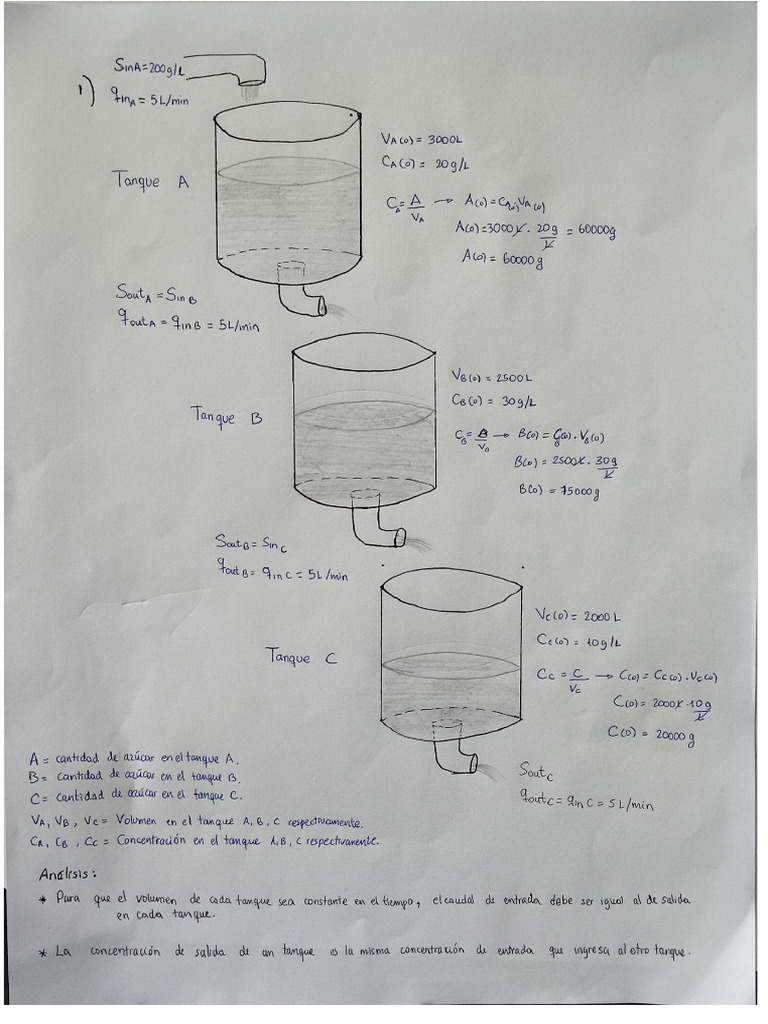 1)
SinA = 200g/L
qinA = 5L/min
Tanque A
VA(0) = 3000L
CA(0) = 20g/L
CA = A/VA → A(0) = CA(0).VA(0)
A(0) = 3000L. 20g/L = 60000g
A(0) = 60000g
SoutA = SinB
qoutA = qinB = 5L/min
Tanque B
VB(0) = 2500L
CB(0) = 30g/L
CB = B/VB → B(0) = CB(0). VB(0)
B(0) = 2500L. 30g/L
B(0) = 75000g
SoutB = SinC
qoutB = qinC = 5L/min
Tanque C
VC(0) = 2000L
CC(0) = 10g/L
CC = C/VC → C(0) = CC(0).VC(0)
C(0) = 2000L.10g/L
C(0) = 20000g
SoutC
qoutC = qinC = 5L/min
A = cantidad de azúcar en el tanque A.
B = cantidad de azúcar en el tanque B.
C = cantidad de azúcar en el tanque C.
VA, VB, VC = Volumen en el tanque A, B, C respectivamente.
CA, CB, CC = Concentración en el tanque A, B, C respectivamente.
Análisis:
* Para que el volumen de cada tanque sea constante en el tiempo, el caudal de entrada debe ser igual al de salida
en cada tanque.
* La concentración de salida de un tanque es la misma concentración de entrada que ingresa al otro tanque.